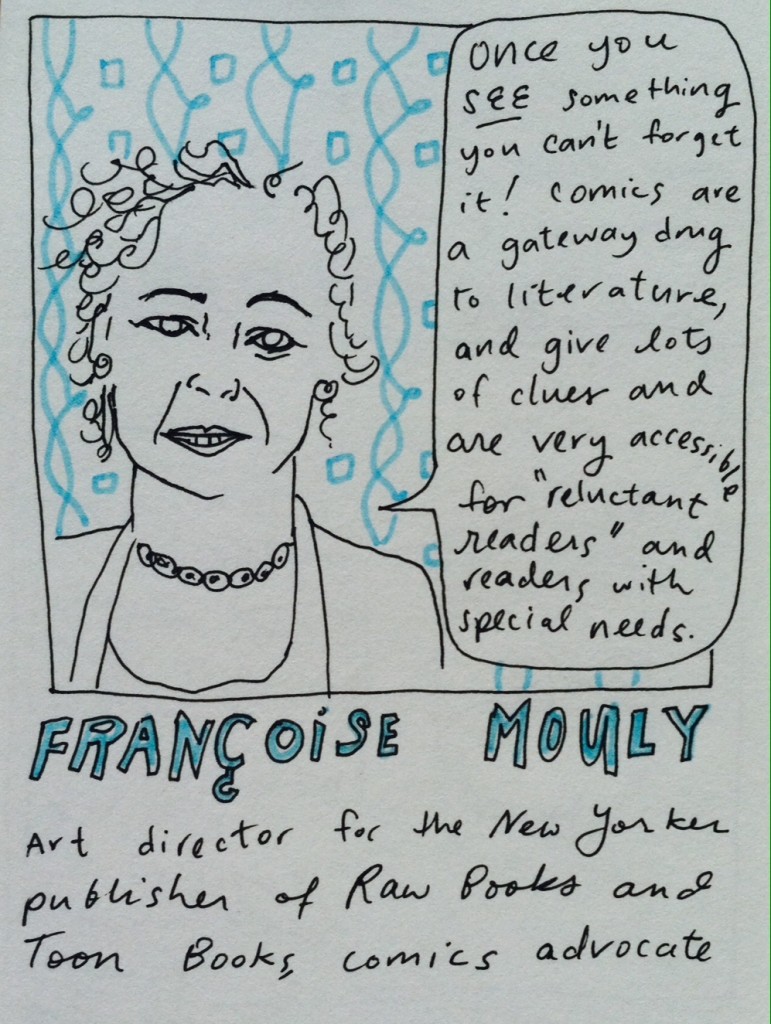 Once you
SEE something
you can't forget
it! Comics are
a gateway drug
to literature,
and give lots
of clues and
are very accessible
for "reluctant
readers" and
readers with
special needs.
FRANÇOISE MOULY
Art director for the New Yorker
publisher of Raw Books and
Toon Books, comics advocate